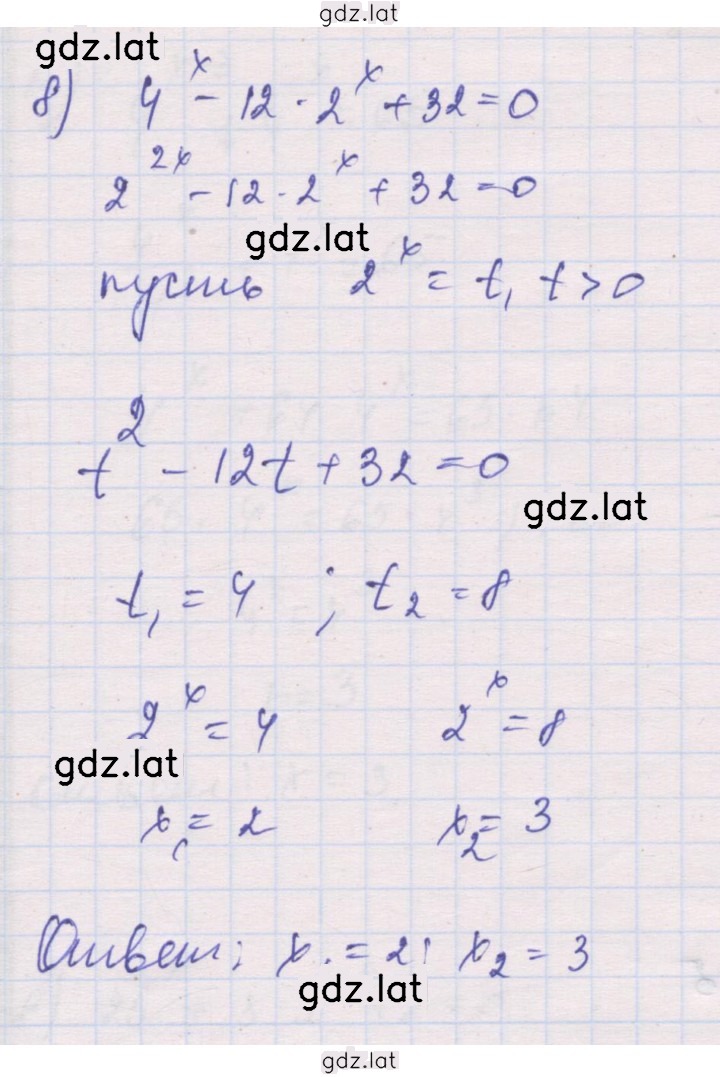 gdz.lat
gdz.lat
8) 4^x - 12 · 2^x + 32 = 0
2^{2x} - 12 · 2^x + 32 = 0
gdz.lat
пусть 2^x = t, t > 0
t^2 - 12t + 32 = 0
gdz.lat
t_1 = 4 ; t_2 = 8
2^x = 4 2^x = 8
gdz.lat
x_1 = 2 x_2 = 3
Ответ: x_1 = 2; x_2 = 3
gdz.lat
gdz.lat